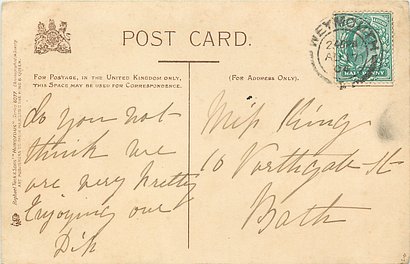 POST CARD.
FOR POSTAGE, IN THE UNITED KINGDOM ONLY,
THIS SPACE MAY BE USED FOR CORRESPONDENCE.
(FOR ADDRESS ONLY).
WEYMOUTH
HALF PENNY
Do you not
think we
are very pretty
Enjoying our
Dip
Miss King
10 Northgate St
Bath